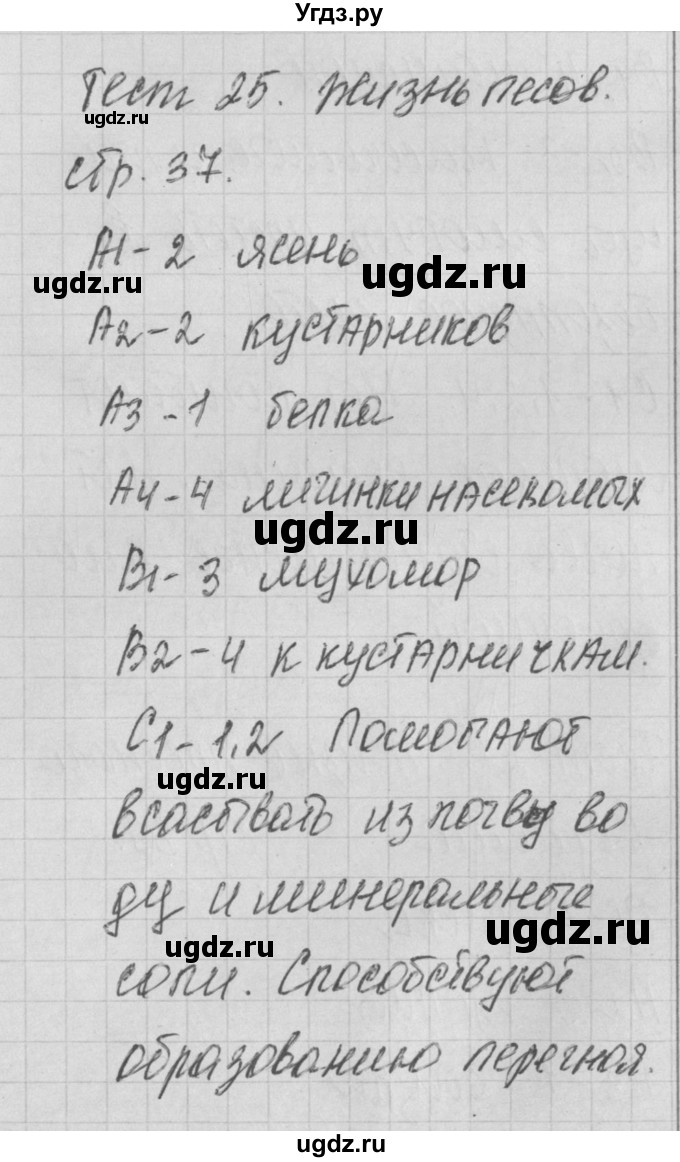 Угдз.ру
Тест 25. Жизнь лесов.
ugdz.ru
стр. 37.
А1-2 ясень
ugdz.ru
ugdz.ru
А2-2 кустарников
А3-1 белка
А4-4 личинки насекомых
ugdz.ru
В1-3 мухомор
В2-4 к кустарничкам.
С1-1,2 Помогают
ugdz.ru
всасывать из почвы во
ду и минеральные
ugdz.ru
ugdz.ru
соли. Способствуют
образованию перегноя.
ugdz.ru
ugdz.ru